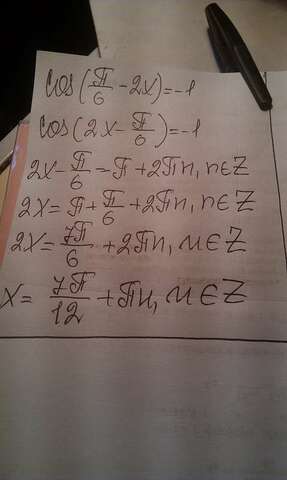 cos(π/6 - 2x) = -1
cos(2x - π/6) = -1
2x - π/6 = π + 2πn, n∈Z
2x = π + π/6 + 2πn, n∈Z
2x = 7π/6 + 2πn, n∈Z
x = 7π/12 + πn, n∈Z